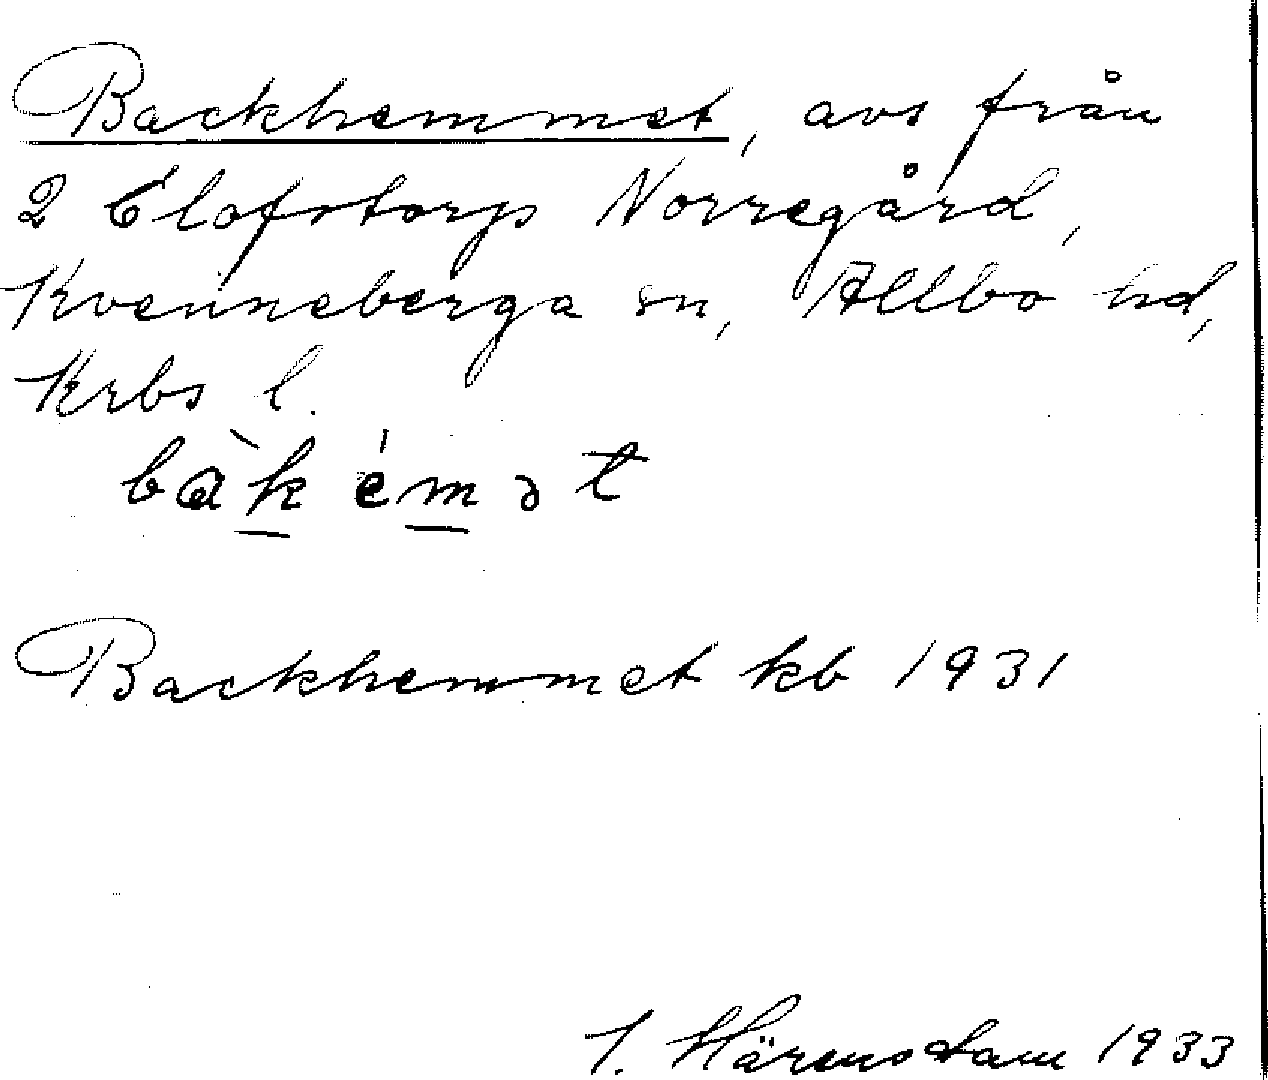 Backhemmet, avs från
2 Elofstorp Norregård,
Kvenneberga sn, Allbo hd,
Krbs l.
bàkémət
Backhemmet kb 1931
1933